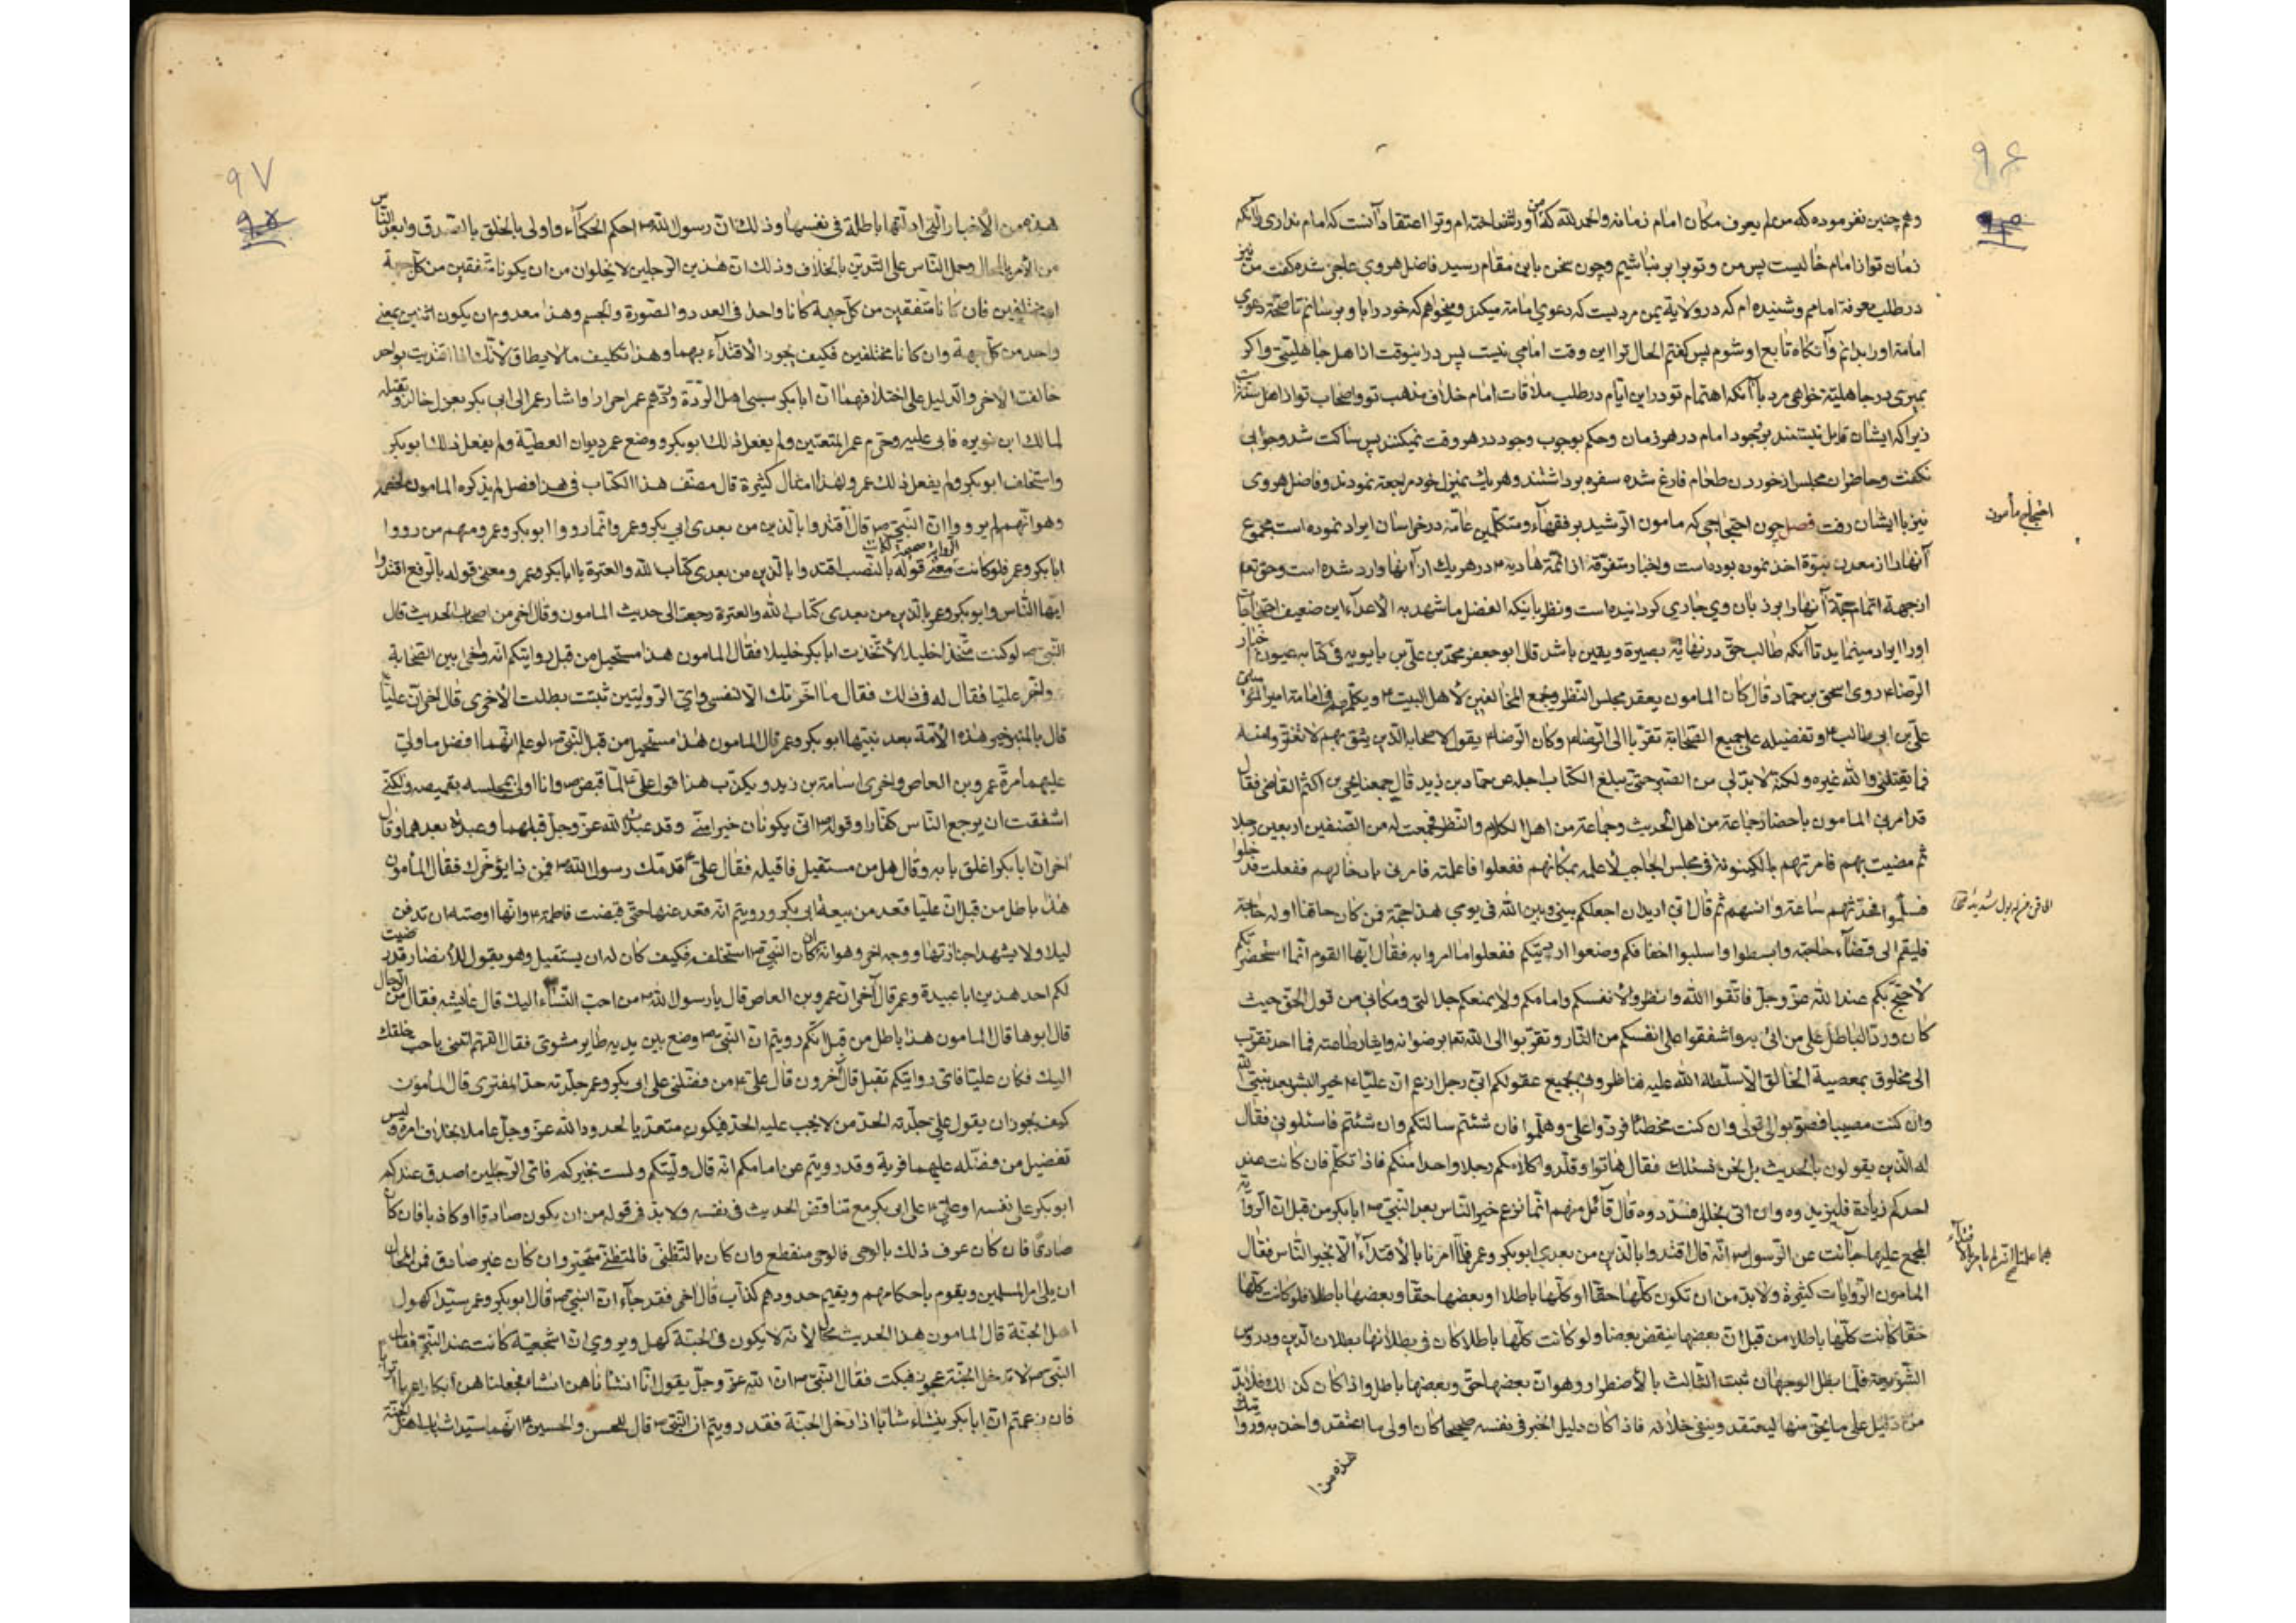 ۹۶
وهم چنین نفرموده که من لم یعرف مکان امام زمانه والحمد لله که من او را شناخته ام و ترا اعتقاد آنست که امام نداری بلکه
زمان تو از امام خالیست پس من و تو برابر نباشیم و چون سخن باین مقام رسید فاضل هروی عاجز شده گفت من نیز
در طلب معرفة امامم و شنیده ام که در ولایة یمن مردیست که دعوی امامة میکند و میخواهم که خود را باو برسانم تا صحة دعوی
امامة او را بدانم و آنگاه تابع او شوم پس گفتم الحال ترا این وقت امامی نیست پس در اینوقت از اهل جاهلیتی و اگر
بمیری در جاهلیة خواهی مرد با آنکه اهتمام تو در این ایام در طلب ملاقات امام خلاف مذهب تو و اصحاب تو از اهل سنتست
زیرا که ایشان قایل نیستند بوجود امام در هر زمان و حکم بوجوب وجود در هر وقت نمیکنند پس ساکت شد و جوابی
نگفت و حاضران مجلس از خوردن طعام فارغ شده سفره برداشتند و هر یک بمنزل خود مراجعة نمودند و فاضل هروی
نیز با ایشان رفت فصل چون احتجاجی که مامون الرشید بر فقهاء و متکلمین عامّه در خراسان ایراد نموده است مجموع
آنها را از معدن نبوة اخذ نموده بوده است و اخبار متفرقة از ائمة هادیه ع در هر یک از آنها وارد شده است و حق تعه
از جهة اتمام حجة آنها را بر زبان وی جاری گردانیده است و نظر باینکه الفضل ما شهد به الاعداء این ضعیف احتجاجات
او را ایراد مینماید تا آنکه طالب حق در نهایة بصیرة و یقین باشد قال ابو جعفر محمد بن علی بن بابویه فی کتابه عیون اخبار
الرضا ع روی اسحق بن حماد قال کان المامون یعقد مجلس النظر ویجمع المخالفین لاهل البیت ع ویکلمهم فی امامة امیر المؤمنین
علی بن ابی طالب ع وتفضیله علی جمیع الصحابة تقربا الی الرضا ع وکان الرضا ع یقول لاصحابه الذین یثق بهم لا تغتروا منه
فما یقتلنی والله غیره ولکنه لا بد لی من الصبر حتی یبلغ الکتاب اجله عن حماد بن زید قال جمعنا یحیی بن اکثم القاضی فقال
قد امرنی المامون باحضار جماعة من اهل الحدیث وجماعة من اهل الکلام والنظر فجمعت له من الصنفین اربعین رجلا
ثم مضیت بهم فامرتهم بالکینونة فی مجلس الحاجب لاعلمه بمکانهم ففعلوا فاعلمته فامرنی بادخالهم ففعلت فدخلوا
فسلموا فحدثهم ساعة وانسهم ثم قال انی ارید ان اجعلکم بینی وبین الله فی یومی هذا حجة فمن کان حاقنا او له حاجة
فلیقم الی قضاء حاجته وابسطوا واسلبوا اخفافکم وضعوا اردیتکم ففعلوا ما امروا به فقال ایها القوم انما استحضرتکم
لاحتج بکم عند الله عز وجل فاتقوا الله وانظروا لانفسکم وامامکم ولا یمنعکم جلالتی ومکانی من قول الحق حیث
کان ورد الباطل علی من اتی به واشفقوا علی انفسکم من النار وتقربوا الی الله تعه برضوانه وایثار طاعته فما احد تقرب
الی مخلوق بمعصیة الخالق الا سلطه الله علیه فناظرونی بجمیع عقولکم انی رجل ازعم ان علیا ع خیر البشر بعد نبی الله
وان کنت مصیبا فصوبوا لی قولی وان کنت مخطئا فردوا علی وهلموا فان شئتم سالتکم وان شئتم فاسئلونی فقال
له الذین یقولون بالحدیث بل نحن نسئلک فقال هاتوا وقلدوا کلامکم رجلا واحدا منکم فاذا تکلم فان کانت عند
احدکم زیادة فلیزیدوه وان اتی بخلل فسددوه قال قائل منهم انما نزعم خیر الناس بعد النبی ص ابابکر من قبل ان الروایة
المجمع علیها جاءت عن الرسول ص انه قال اقتدوا بالذین من بعدی ابوبکر وعمر فلما امرنا بالاقتداء الا بخیر الناس فقال
المامون الروایات کثیرة ولا بد من ان تکون کلها حقا او کلها باطلا او بعضها حقا وبعضها باطلا فلو کانت کلها
حقا کانت کلها باطلا من قبل ان بعضها ینقض بعضا ولو کانت کلها باطلا کان فی بطلانها بطلان الدین ودروس
الشریعة فلما بطل الوجهان ثبت الثالث بالاضطرار وهو ان بعضها حق وبعضها باطل واذا کان کذلک فلا بد
من دلیل علی ما یحق منها لیعتقد وینفی خلافه فاذا کان دلیل الخبر فی نفسه صحیحا کان اولی ما اعتقد واخذ به وروایتک
هذه من ا
احتجاج مأمون
۹۷
هذه من الاخبار التی ادلتها باطلة فی نفسها وذلک ان رسول الله ص احکم الحکماء واولی بالخلق بالصدق وابعد الناس
من الامر بالمحال وحمل الناس علی التدین بالخلاف وذلک ان هذین الرجلین لا یخلوان من ان یکونا متفقین من کل جهة
او مختلفین فان کانا متفقین من کل جهة کانا واحدا فی العدد والصورة والجسم وهذا معدوم ان یکون اثنین بمعنی
واحد من کل جهة وان کانا مختلفین فکیف یجوز الاقتداء بهما وهذا تکلیف ما لا یطاق لانک اذا اقتدیت بواحد
خالفت الاخر والدلیل علی اختلافهما ان ابابکر سبی اهل الردة وردهم عمر احرارا واشار عمر الی ابی بکر بعزل خالد وبقتله
لمالک ابن نویره فابی علیه وحرم عمر المتعتین ولم یفعل ذلک ابوبکر ووضع عمر دیوان العطیة ولم یفعل ذلک ابوبکر
واستخلف ابوبکر ولم یفعل ذلک عمر ولهذا امثال کثیرة قال مصنف هذا الکتاب فی هذا فصل لم یذکره المامون لخصمه
وهو انهم لم یرووا ان النبی ص قال اقتدوا بالذین من بعدی ابی بکر وعمر وانما رووا ابوبکر وعمر ومنهم من رووا
ابابکر وعمر فلو کانت الروایة صحیحة لکان معنی قوله بالنصب اقتدوا بالذین من بعدی کتاب الله والعترة یا ابابکر وعمر ومعنی قوله بالرفع اقتدوا
ایها الناس وابوبکر وعمر بالذین من بعدی کتاب الله والعترة رجعت الی حدیث المامون وقال اخر من اصحاب الحدیث قال
النبی ص لو کنت متخذا خلیلا لاتخذت ابابکر خلیلا فقال المامون هذا مستحیل من قبل روایتکم انه واخی بین الصحابة
واخر علیا فقال له فی ذلک فقال ما اخرتک الا لنفسی وای الروایتین ثبتت بطلت الاخری قال اخر ان علیا
قال بالمنبر خیر هذه الامة بعد نبیها ابوبکر وعمر قال المامون هذا مستحیل من قبل النبی ص لو علم انهما افضل ما ولی
علیهما مرة عمرو بن العاص واخری اسامة بن زید ویکذب هذا قول علی ع لما قبض ص وانا اولی بمجلسه بقمیصه ولکنی
اشفقت ان یرجع الناس کفارا وقوله ع انی یکونان خیرا منی وقد عبدت الله عز وجل قبلهما وعبدته بعدهما وقال
اخر ان ابابکر اغلق بابه وقال هل من مستقیل فاقیله فقال علی ع قدمک رسول الله ص فمن ذا یؤخرک فقال المأمون
هذا باطل من قبل ان علیا قعد من بیعة ابی بکر ورویتم انه قعد عنها حتی قبضت فاطمة ع وانها اوصت ان تدفن
لیلا ولا یشهدا جنازتها ووجه اخر وهو انه ان کان النبی ص استخلفه فکیف کان له ان یستقیل وهو یقول للانصار قد رضیت
لکم احد هذین ابا عبیدة وعمر قال آخر ان عمرو بن العاص قال یا رسول الله ص من احب النساء الیک قال عایشه فقال من الرجال
قال ابوها قال المامون هذا باطل من قبل انکم رویتم ان النبی ص وضع بین یدیه طایر مشوی فقال اللهم ائتنی باحب خلقک
الیک فکان علیا فای روایتکم تقبل قال آخرون قال علی ع من فضلنی علی ابی بکر وعمر جلدته حد المفتری قال المأمون
کیف یجوز ان یقول علی جلدته الحد من لا یجب علیه الحد فیکون متعدیا لحدود الله عز وجل عاملا بخلاف امره ولیس
تفضیل من فضله علیهما فریة وقد رویتم عن امامکم انه قال ولیتکم ولست بخیرکم فای الرجلین اصدق عندکم
ابوبکر علی نفسه او علی ع علی ابی بکر مع تناقض الحدیث فی نفسه ولا بد فی قوله من ان یکون صادقا او کاذبا فان کان
صادقا فان کان عرف ذلک بالوحی فالوحی منقطع وان کان بالتظنی فالمتظنی متحیر وان کان غیر صادق فمن المحال
ان یلی امر المسلمین ویقوم باحکامهم ویقیم حدودهم کذاب قال اخر فقد جاء ان النبی ص قال ابوبکر وعمر سیدا کهول
اهل الجنة قال المامون هذا الحدیث محال لانه لا یکون فی الجنة کهل ویروی ان اشجعیة کانت عند النبی فقال
النبی ص لا تدخل الجنة عجوز فبکت فقال النبی ص ان الله عز وجل یقول انا انشاناهن انشاء فجعلناهن ابکارا عربا اترابا
فان زعمتم ان ابابکر ینشاء شابا اذا دخل الجنة فقد رویتم ان النبی ص قال للحسن والحسین ع انهما سیدا شباب اهل الجنة